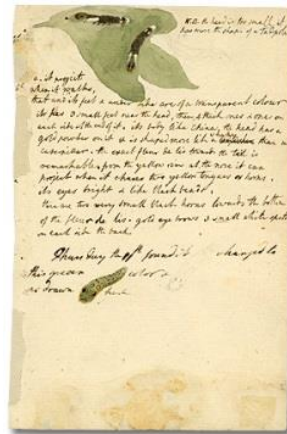 N.B. the head is too small, it
has more the shape of a
it projects
when it walks,
that and its feet & under like are of a transparent colour
its has 3 small feet near the head, then 4 thick ones & one on
each side of the end of it. its body like China, the head has a
gold powder on it & is shaped more like than a
caterpillar. the exact fleur de lis towards the tail is
remarkable, from the yellow rims at the nose it can
project when it chuses two yellow tongues or horns.
its eyes bright & like black beads.
there are two very small black horns towards the bottom
of the fleur de lis. gold eye brows 3 small white spots
on each side the back
Thursday the 19th found it changed to
this green color &
as drawn here